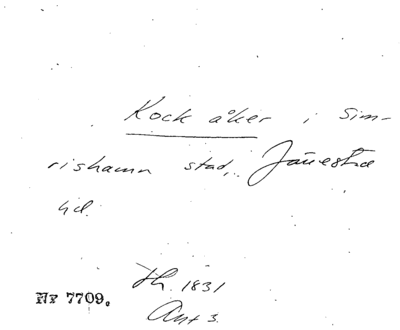 Kock åker i Sim-
rishamn stad, Järrestad
hd.
Nr 7709.
Th. 1831
Ant 3.